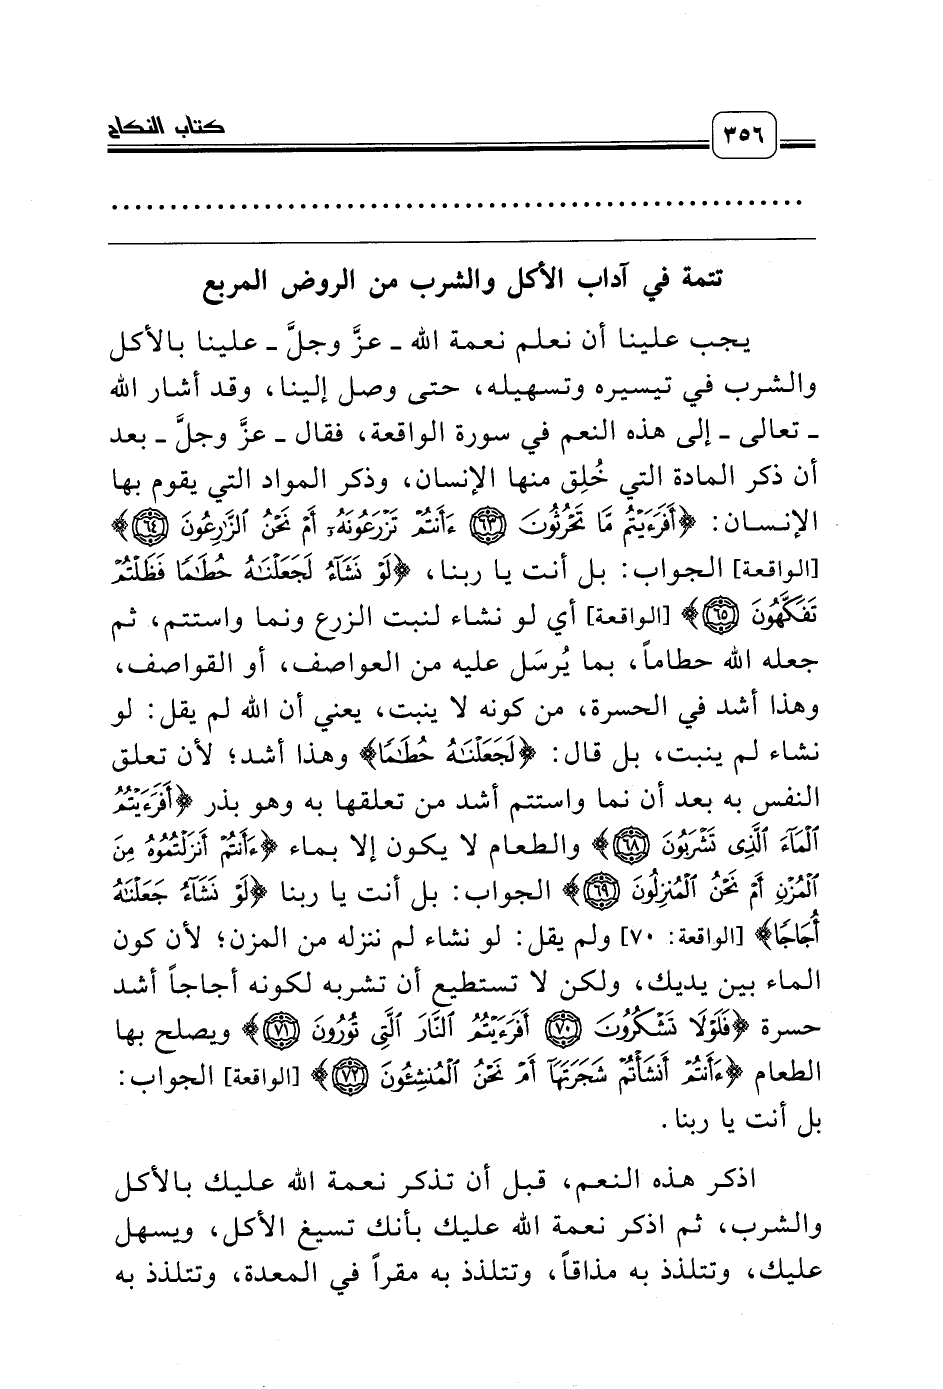 ٣٥٦
كتاب النكاح
تتمة في آداب الأكل والشرب من الروض المربع
يجب علينا أن نعلم نعمة الله ـ عزَّ وجلَّ ـ علينا بالأكل
والشرب في تيسيره وتسهيله، حتى وصل إلينا، وقد أشار الله
ـ تعالى ـ إلى هذه النعم في سورة الواقعة، فقال ـ عزَّ وجلَّ ـ بعد
أن ذكر المادة التي خُلِق منها الإنسان، وذكر المواد التي يقوم بها
الإنسان: ﴿أَفَرَءَيْتُم مَّا تَحْرُثُونَ ٦٣ ءَأَنتُمْ تَزْرَعُونَهُۥٓ أَمْ نَحْنُ ٱلزَّٰرِعُونَ ٦٤﴾
[الواقعة] الجواب: بل أنت يا ربنا، ﴿لَوْ نَشَآءُ لَجَعَلْنَٰهُ حُطَٰمًا فَظَلْتُمْ
تَفَكَّهُونَ ٦٥﴾ [الواقعة] أي لو نشاء لنبت الزرع ونما واستتم، ثم
جعله الله حطاماً، بما يُرسَل عليه من العواصف، أو القواصف،
وهذا أشد في الحسرة، من كونه لا ينبت، يعني أن الله لم يقل: لو
نشاء لم ينبت، بل قال: ﴿لَجَعَلْنَٰهُ حُطَٰمًا﴾ وهذا أشد؛ لأن تعلق
النفس به بعد أن نما واستتم أشد من تعلقها به وهو بذر ﴿أَفَرَءَيْتُمُ
ٱلْمَآءَ ٱلَّذِى تَشْرَبُونَ ٦٨﴾ والطعام لا يكون إلا بماء ﴿ءَأَنتُمْ أَنزَلْتُمُوهُ مِنَ
ٱلْمُزْنِ أَمْ نَحْنُ ٱلْمُنزِلُونَ ٦٩﴾ الجواب: بل أنت يا ربنا ﴿لَوْ نَشَآءُ جَعَلْنَٰهُ
أُجَاجًا﴾ [الواقعة: ٧٠] ولم يقل: لو نشاء لم ننزله من المزن؛ لأن كون
الماء بين يديك، ولكن لا تستطيع أن تشربه لكونه أجاجاً أشد
حسرة ﴿فَلَوْلَا تَشْكُرُونَ ٧٠ أَفَرَءَيْتُمُ ٱلنَّارَ ٱلَّتِى تُورُونَ ٧١﴾ ويصلح بها
الطعام ﴿ءَأَنتُمْ أَنشَأْتُمْ شَجَرَتَهَآ أَمْ نَحْنُ ٱلْمُنشِـُٔونَ ٧٢﴾ [الواقعة] الجواب:
بل أنت يا ربنا.
اذكر هذه النعم، قبل أن تذكر نعمة الله عليك بالأكل
والشرب، ثم اذكر نعمة الله عليك بأنك تسيغ الأكل، ويسهل
عليك، وتتلذذ به مذاقاً، وتتلذذ به مقراً في المعدة، وتتلذذ به